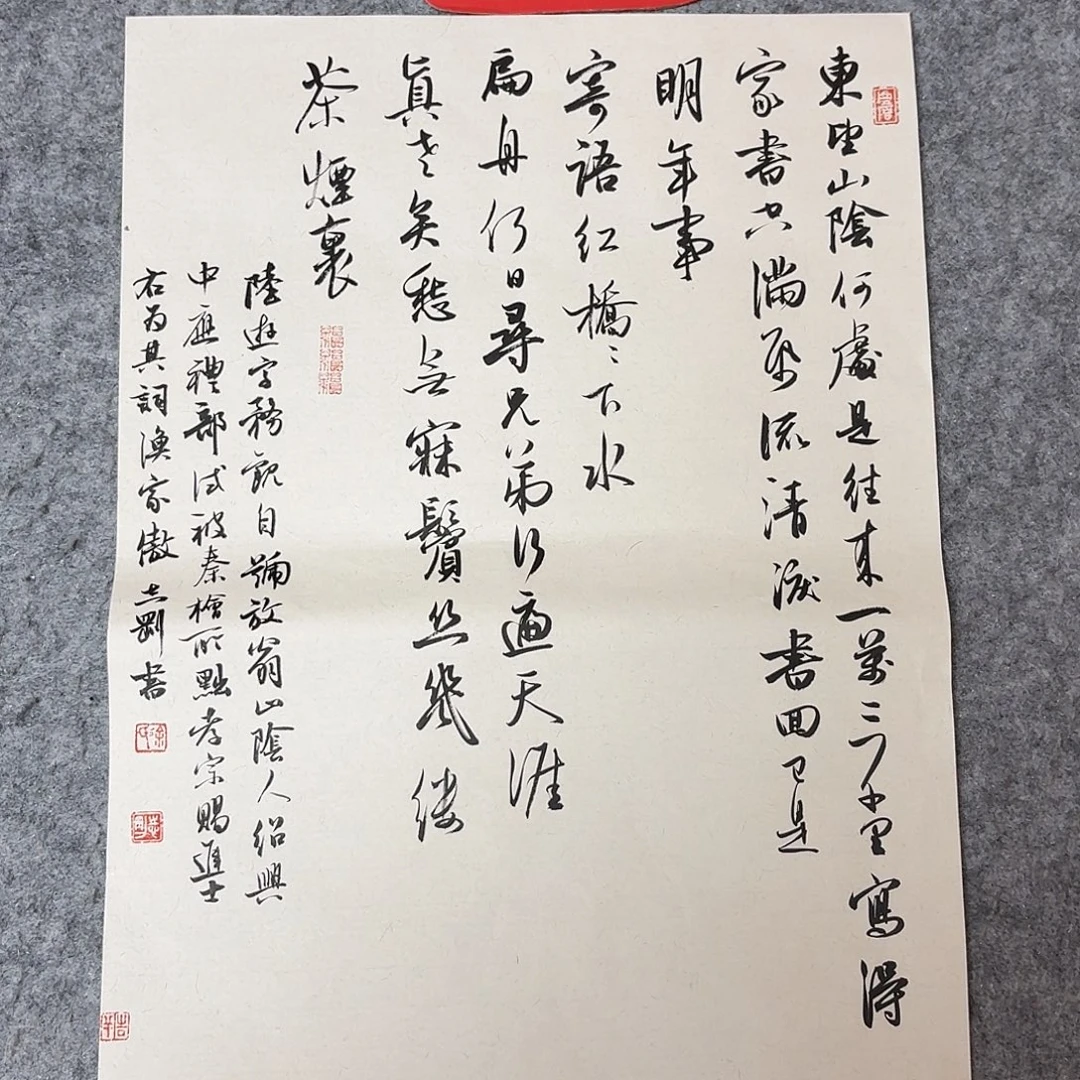 東望山陰何處是往來一萬三千里寫得
家書空滿紙流清淚書回已是
明年事
寄語紅橋〻下水
扁舟何日尋兄弟行遍天涯
真老矣愁無寐鬢絲幾縷
茶煙裏
陸游字務觀自號放翁山陰人紹興
中應禮部試被秦檜所黜孝宗賜進士
右為其詞漁家傲志剛書